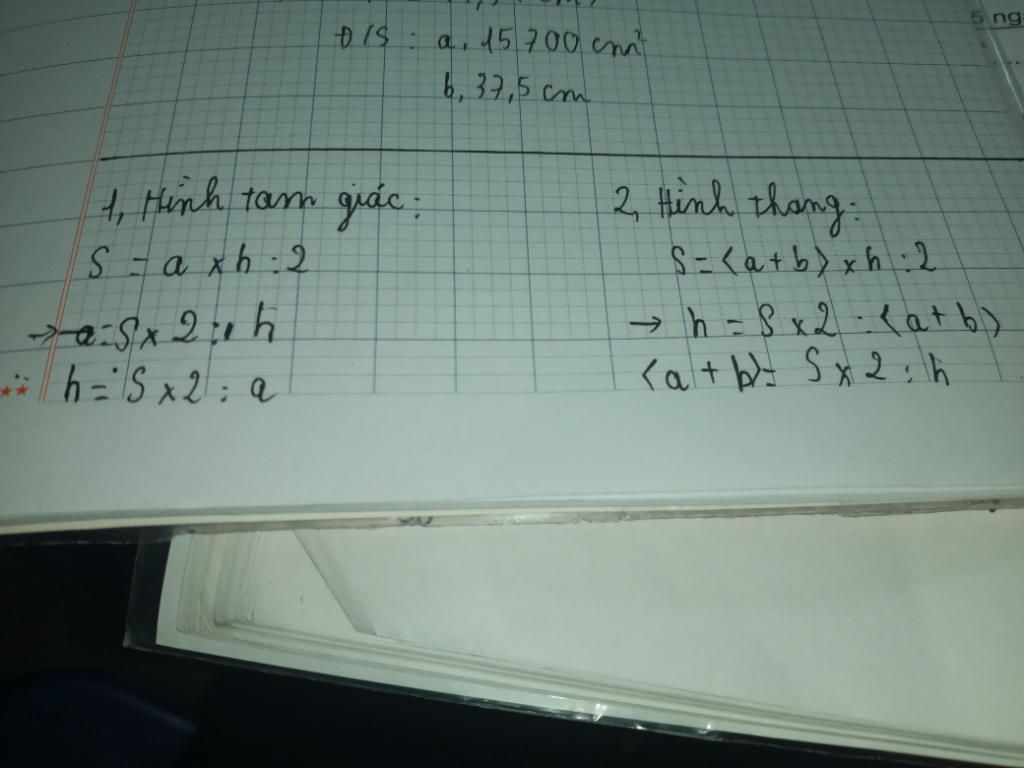 Đ/S : a, 15 700 cm²
b, 37,5 cm
5 ng
1, Hình tam giác:
S = a x h : 2
→ a = S x 2 : h
h = S x 2 : a
2, Hình thang:
S = <a + b> x h : 2
→ h = S x 2 : <a + b>
<a + b> = S x 2 : h